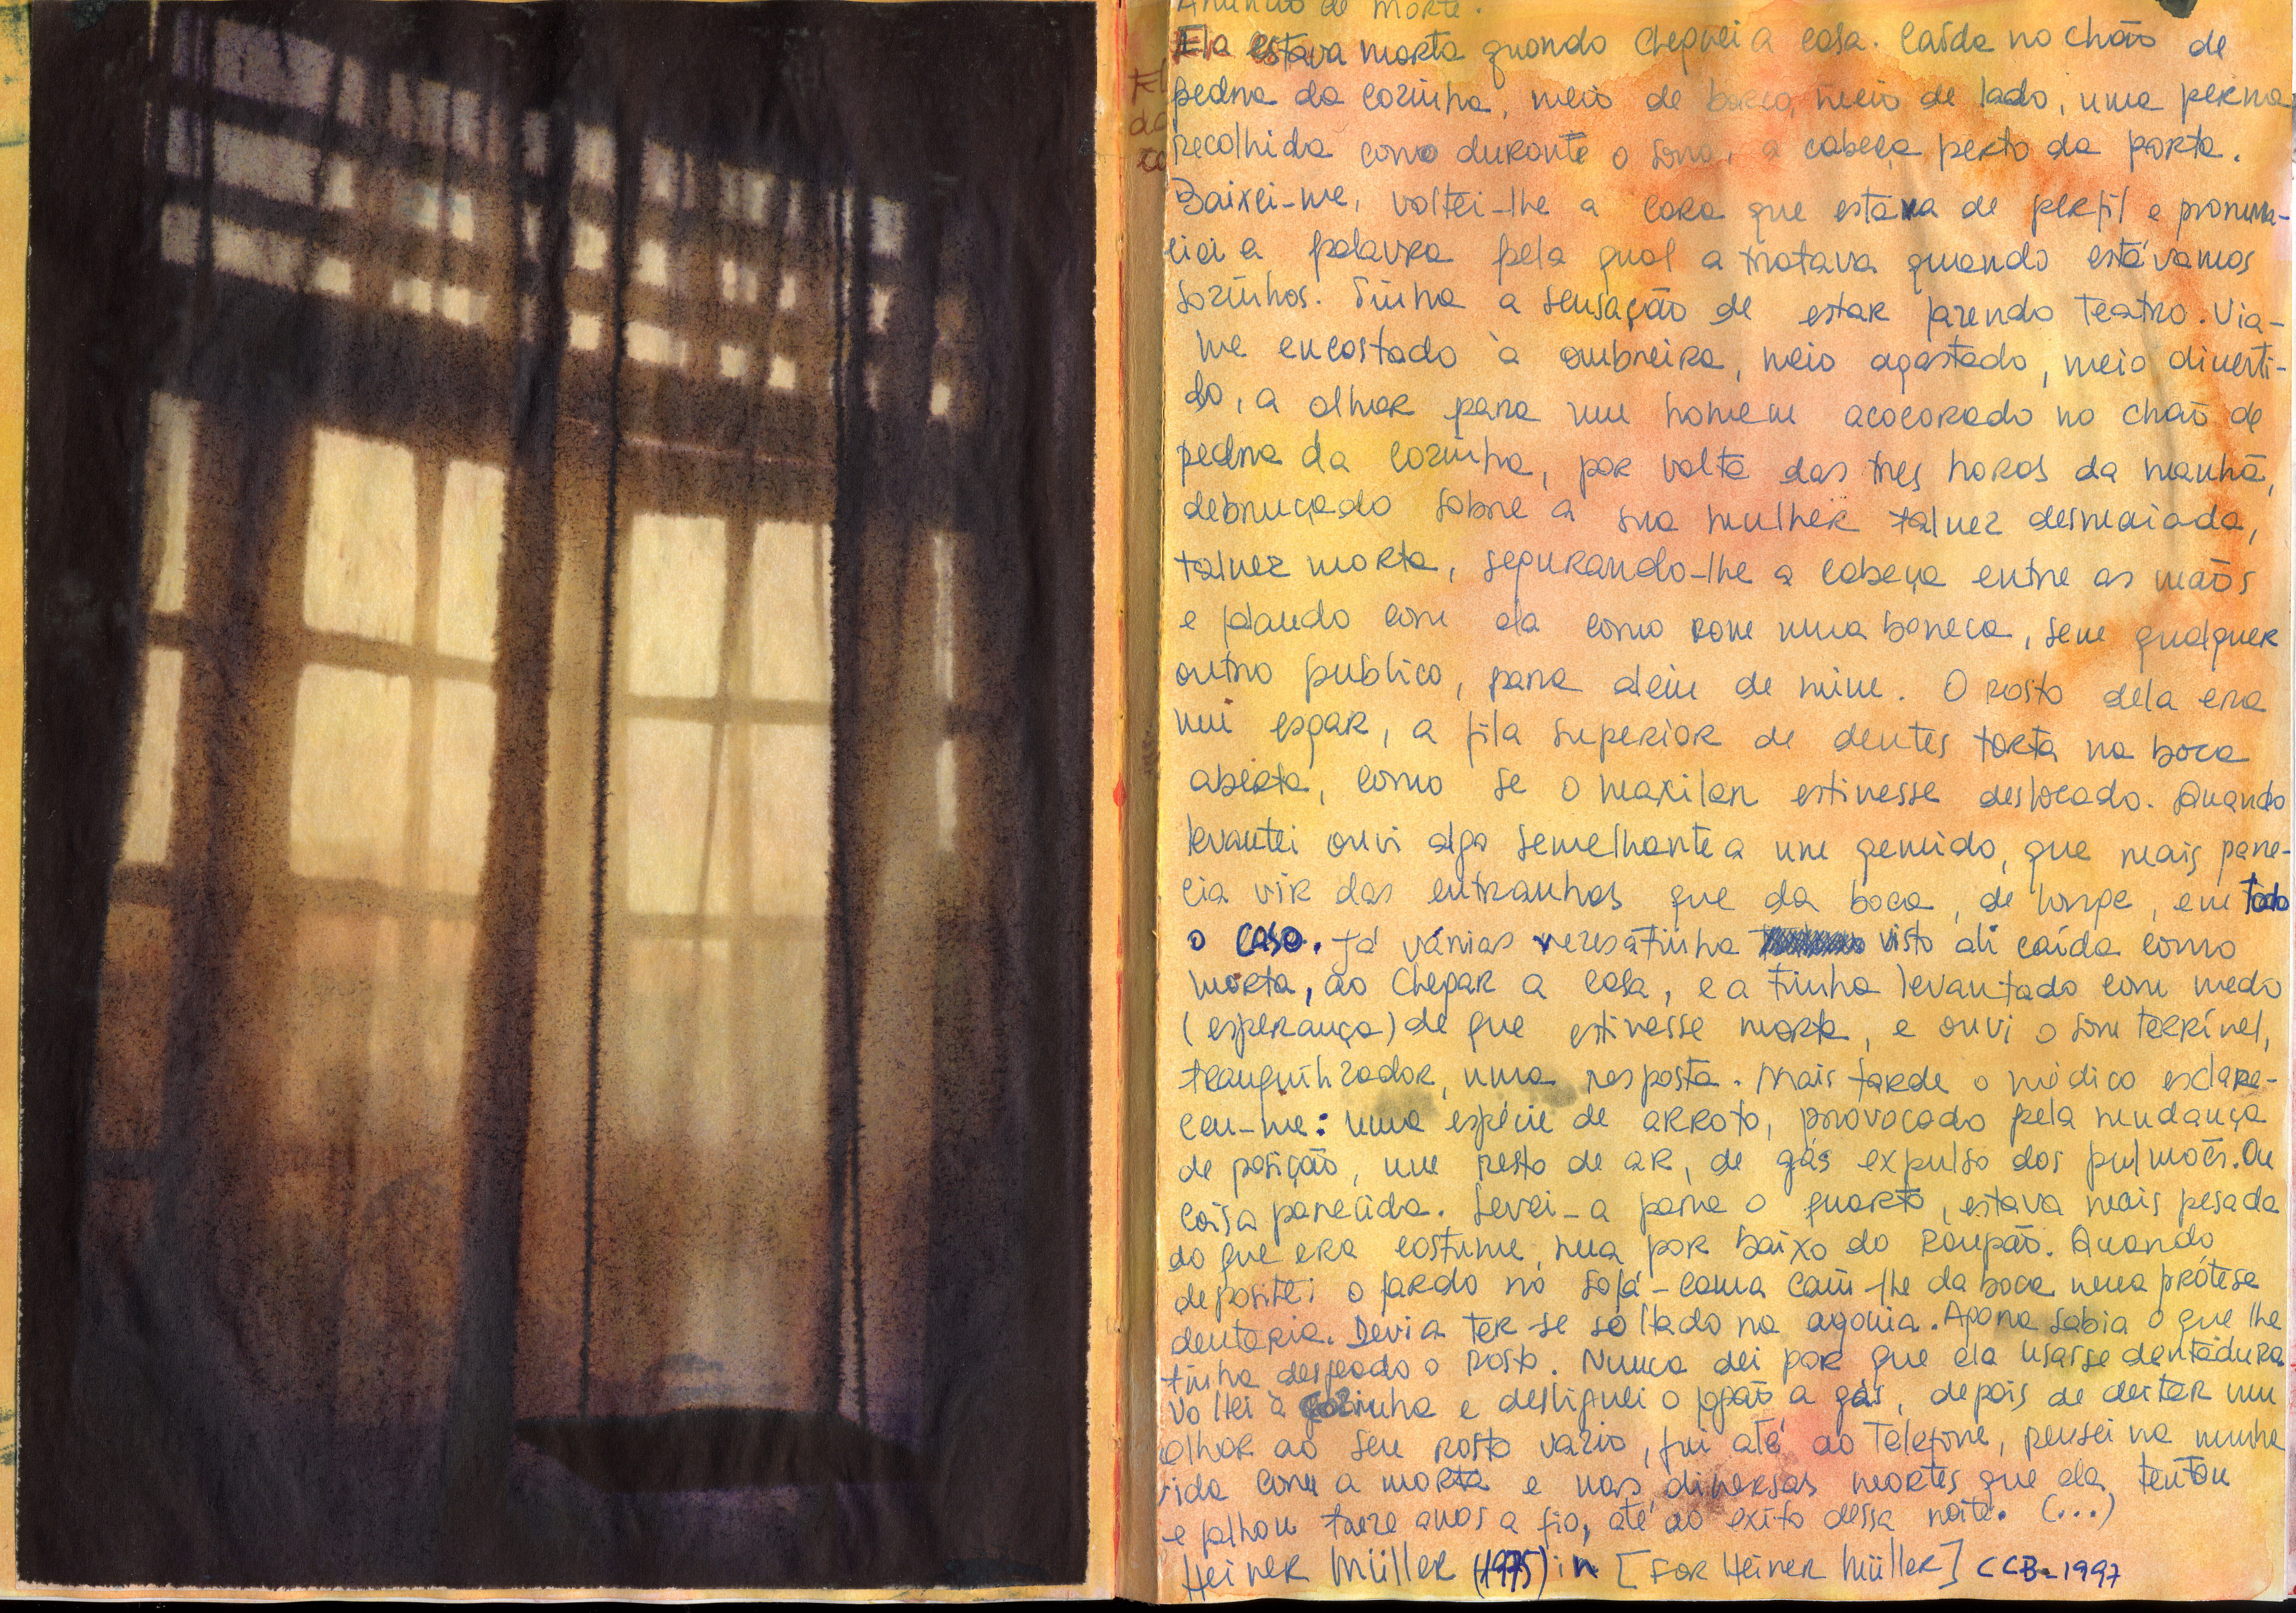 Anúncio de morte.
Ela estava morta quando cheguei a casa. Caída no chão de
pedra da cozinha, meio de borco, meio de lado, uma perna
recolhida como durante o sono, a cabeça perto da porta.
Baixei-me, voltei-lhe a cara que estava de perfil e pronun-
ciei a palavra pela qual a tratava quando estávamos
sozinhos. Tinha a sensação de estar fazendo teatro. Via-
me encostado à ombreira, meio agastado, meio diverti-
do, a olhar para um homem acocorado no chão de
pedra da cozinha, por volta das tres horas da manhã,
debruçado sobre a sua mulher talvez desmaiada,
talvez morta, segurando-lhe a cabeça entre as mãos
e falando com ela como com uma boneca, sem qualquer
outro publico, para alem de mim. O rosto dela era
um esgar, a fila superior de dentes torta na boca
aberta, como se o maxilar estivesse deslocado. Quando
levantei ouvi algo semelhante a um gemido, que mais pare-
cia vir das entranhas que da boca, de longe, em todo
o caso. Já várias vezes a tinha visto ali caída como
morta, ao chegar a casa, e a tinha levantado com medo
(esperança) de que estivesse morta, e ouvi o som terrível,
tranquilizador, uma resposta. Mais tarde o médico esclare-
ceu-me: uma espécie de arroto, provocado pela mudança
de posição, um resto de ar, de gás expulso dos pulmões. Ou
coisa parecida. Levei-a para o quarto, estava mais pesada
do que era costume, nua por baixo do roupão. Quando
depositei o fardo no sofá-cama caiu-lhe da boca uma prótese
dentaria. Devia ter-se soltado na agonia. Agora sabia o que lhe
tinha desfeado o rosto. Nunca dei por que ela usasse dentadura.
Voltei à cozinha e desliguei o fogão a gás, depois de deitar um
olhar ao seu rosto vazio, fui até ao telefone, pensei na minha
vida com a morta e nas diversas mortes que ela tentou
e falhou treze anos a fio, até ao exito dessa noite. (...)
Heiner Müller (1975) in [For Heiner Müller] CCB-1997